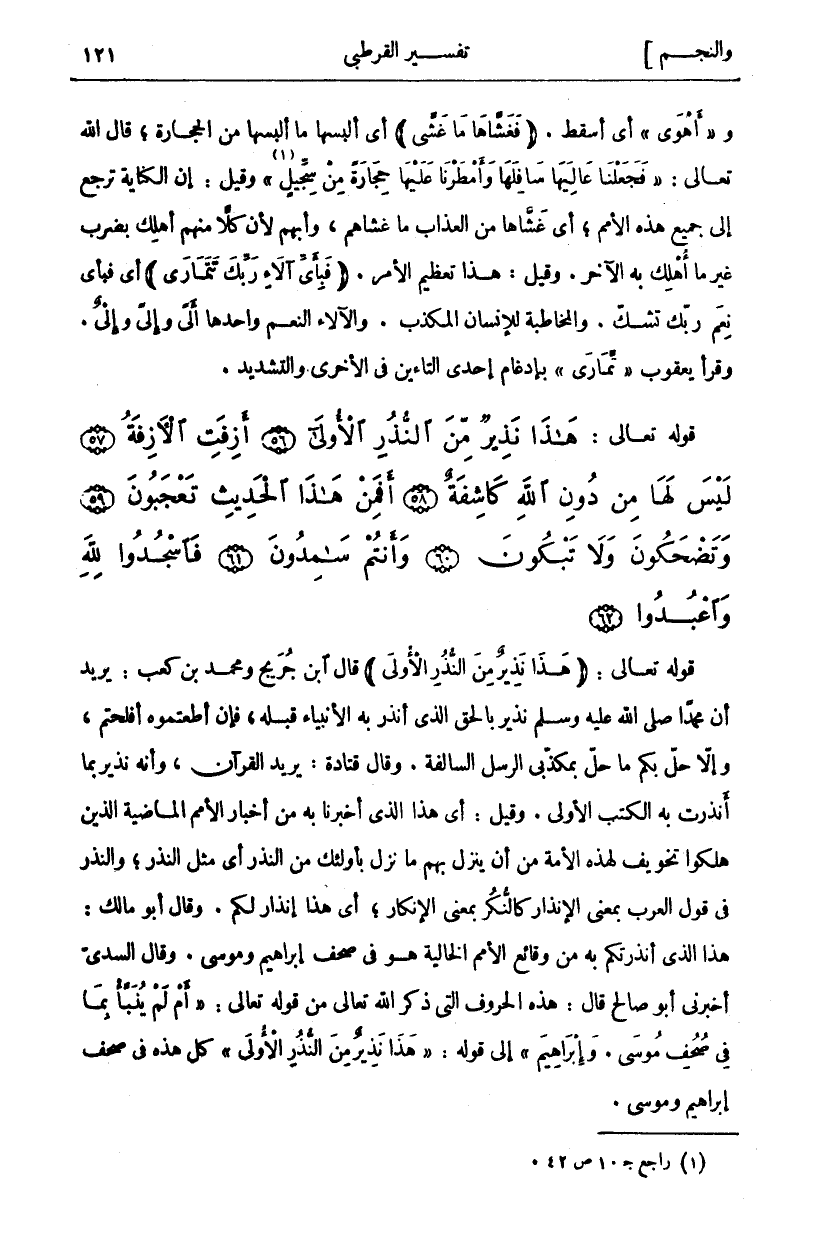 والنجـم ] تفسـير القرطبى ١٢١
و « أَهْوَى » أى أسقط . ( فَغَشَّاهَا مَا غَشَّى ) أى ألبسها ما ألبسها من الحجارة ؛ قال الله
تعـالى : « فَجَعَلْنَا عَالِيَهَا سَافِلَهَا وَأَمْطَرْنَا عَلَيْهَا حِجَارَةً مِنْ سِجِّيلٍ (١) » وقيل : إن الكناية ترجع
إلى جميع هذه الأمم ؛ أى غَشَّاها من العذاب ما غشاهم ، وأبهم لأن كلًّا منهم أهلك بضرب
غير ما أُهْلك به الآخر . وقيل : هـذا تعظيم الأمر . ( فَبِأَىِّ آلَاءِ رَبِّكَ تَتَمَـارَى ) أى فبأى
نِعَم ربّك تشـكّ . والمخاطبة للإنسان المكذب . والآلاء النعـم واحدها أَلًى وإِلًى وإِلْىٌ .
وقرأ يعقوب « تَّمَارَى » بإدغام إحدى التاءين فى الأخرى والتشديد .
قوله تعـالى : هَـٰذَا نَذِيرٌ مِّنَ ٱلنُّذُرِ ٱلْأُولَىٰٓ ٥٦ أَزِفَتِ ٱلْآزِفَةُ ٥٧
لَيْسَ لَهَا مِن دُونِ ٱللَّهِ كَاشِفَةٌ ٥٨ أَفَمِنْ هَـٰذَا ٱلْحَدِيثِ تَعْجَبُونَ ٥٩
وَتَضْحَكُونَ وَلَا تَبْكُونَ ٦٠ وَأَنتُمْ سَـٰمِدُونَ ٦١ فَٱسْجُدُوا لِلَّهِ
وَٱعْبُـدُوا ٦٢
قوله تعـالى : ( هَـذَا نَذِيرٌ مِنَ النُّذُرِ الْأُولَى ) قال ٱبن جُرَيج ومحمـد بن كعب : يريد
أن محمدًا صلى الله عليه وسـلم نذير بالحق الذى أنذر به الأنبياء قبـله ، فإن أطعتموه أفلحتم ،
وإلّا حلّ بكم ما حلّ بمكذّبى الرسل السالفة . وقال قتادة : يريد القرآن ، وأنه نذير بما
أُنذرت به الكتب الأولى . وقيل : أى هذا الذى أخبرنا به من أخبار الأمم المـاضية الذين
هلكوا تخويف لهذه الأمة من أن ينزل بهم ما نزل بأولئك من النذر أى مثل النذر ؛ والنذر
فى قول العرب بمعنى الإنذار كالنُّكُر بمعنى الإنكار ؛ أى هذا إنذار لكم . وقال أبو مالك :
هذا الذى أنذرتكم به من وقائع الأمم الخالية هـو فى صحف إبراهيم وموسى . وقال السدىّ
أخبرنى أبو صالح قال : هذه الحروف التى ذكر الله تعالى من قوله تعالى : « أَمْ لَمْ يُنَبَّأْ بِمَـا
فِى صُحُفِ مُوسَى . وَإِبْرَاهِيمَ » إلى قوله : « هَذَا نَذِيرٌ مِنَ النُّذُرِ الْأُولَى » كل هذه فى صحف
إبراهيم وموسى .
(١) راجع جـ ١٠ ص ٤٢ .